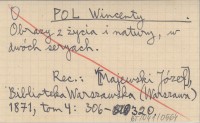 POL Wincenty.
Obrazy z życia i natury, w
dwóch seryach.
Rec.: Majewski Józef,
Biblioteka Warszawska (Warszawa)
1871, tom 4: 306-320